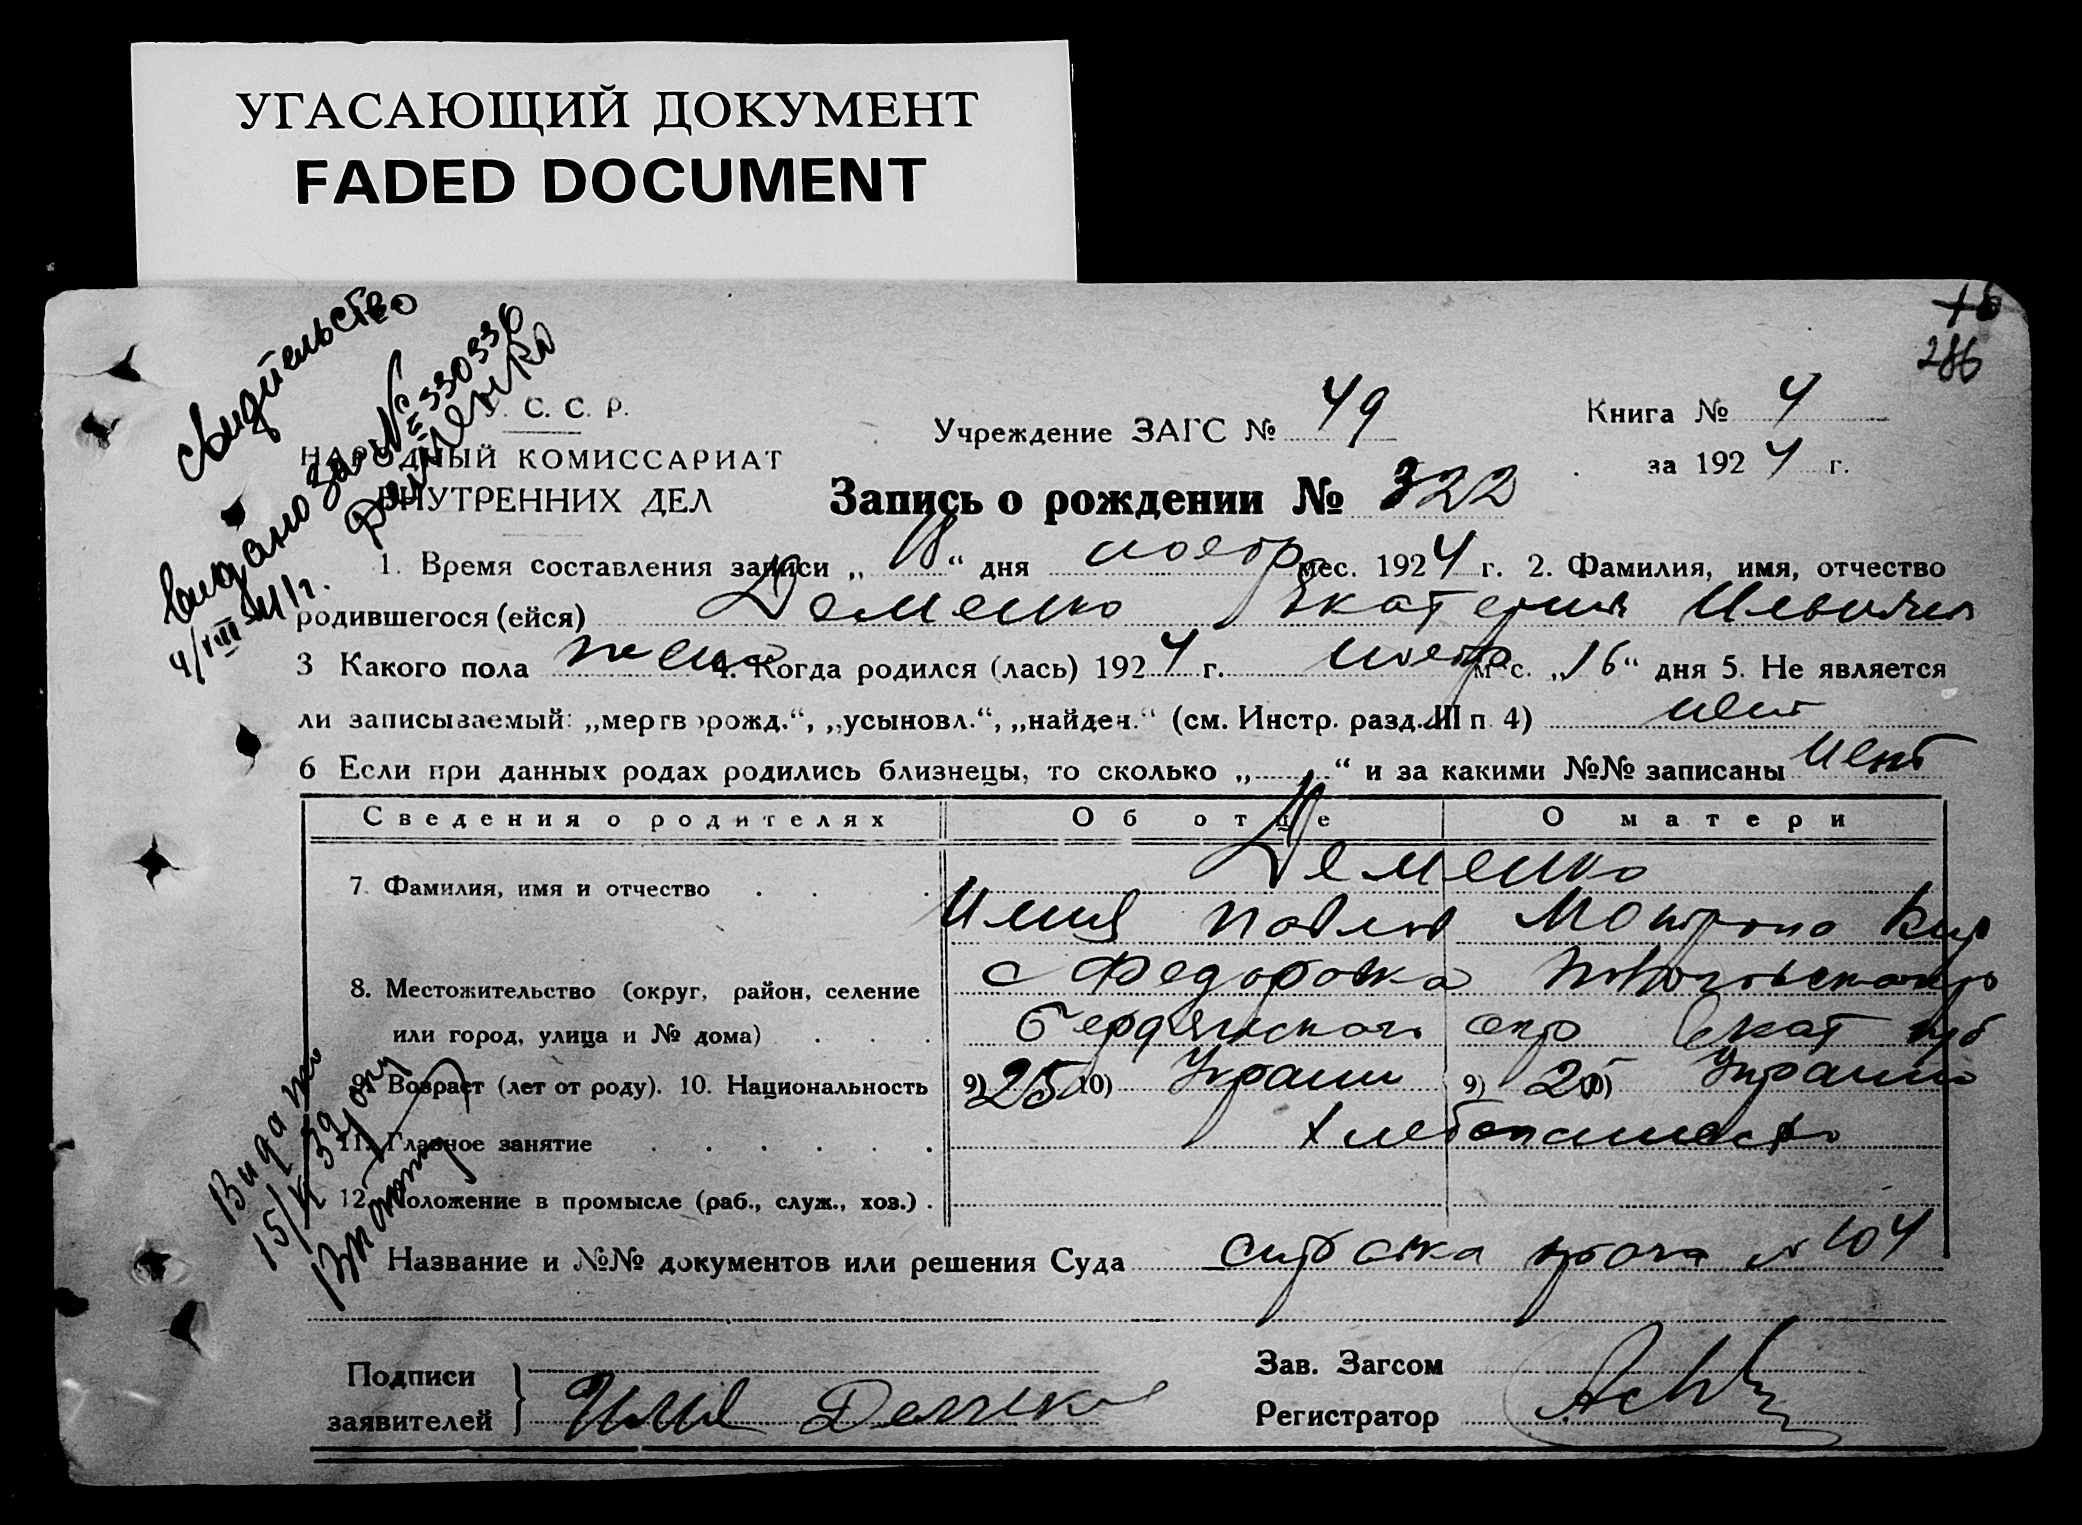 УГАСАЮЩИЙ ДОКУМЕНТ
FADED DOCUMENT
+6
286
Свидетельство
выдано за №
330330
4/VIII-41 г.
У. С. С. Р.
НАРОДНЫЙ КОМИССАРИАТ
ВНУТРЕННИХ ДЕЛ
Учреждение ЗАГС № 49
Книга № 4
за 1924 г.
Запись о рождении № 322
1. Время составления записи „18“ дня ноябр мес. 1924 г. 2. Фамилия, имя, отчество
родившегося (ейся) Деменко Екатерина Ильична
3 Какого пола жен 4. Когда родился (лась) 1924 г. ноябр мес. „16“ дня 5. Не является
ли записываемый: „мертворожд.“, „усыновл.“, „найден.“ (см. Инстр. разд. III п. 4) нет
6 Если при данных родах родились близнецы, то сколько „ “ и за какими №№ записаны нет
Сведения о родителях Об отце О матери
7. Фамилия, имя и отчество Деменко
Илия Павлов Мотрона Кир
8. Местожительство (округ, район, селение с Федоровка
или город, улица и № дома) Бердянского окр Екат губ
9. Возраст (лет от роду). 10. Национальность 9) 25 10) Украин 9) 25 10) Украин
11. Главное занятие Хлебопашество
12. Положение в промысле (раб., служ., хоз.)
Название и №№ документов или решения Суда справка врача № 104
Подписи
заявителей Илия Деменко
Зав. Загсом
Регистратор